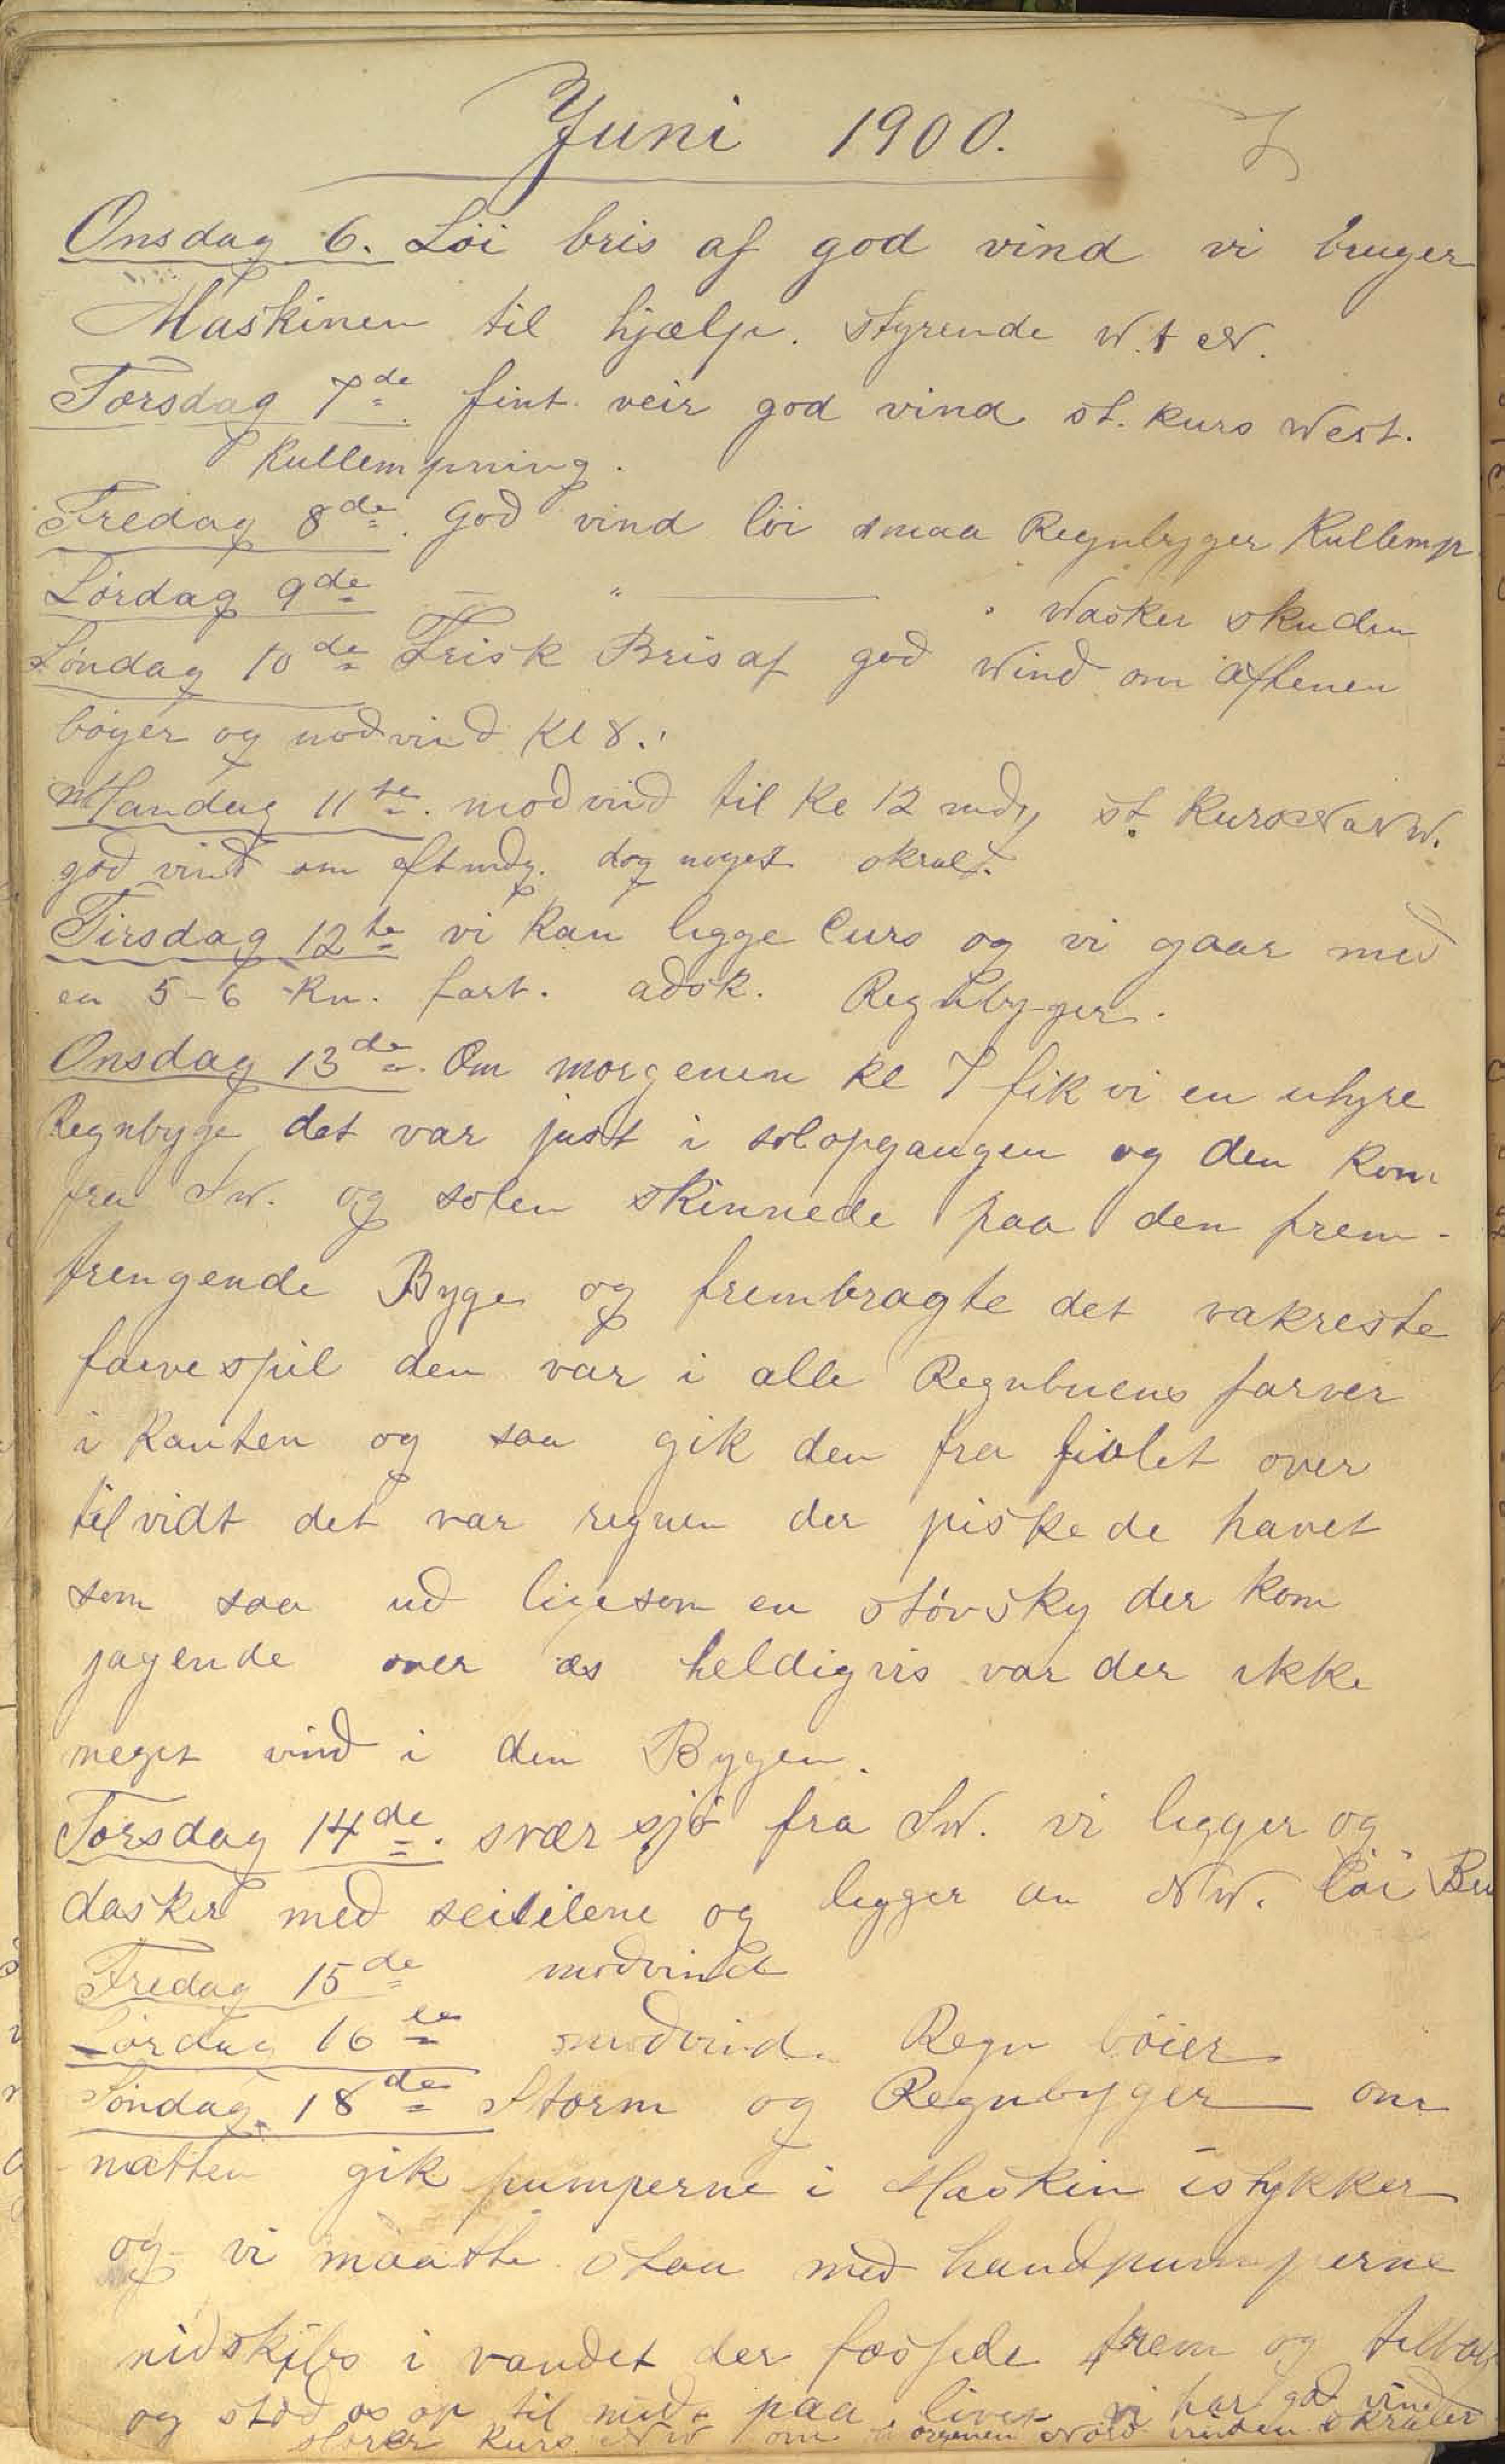 Juni 1900.
Onsdag 6. Löi bris af god vind vi bruger
Maskinen til hjælp. styrende W.t.N.
Torsdag 7de fint veir god vind st. kurs West.
kullempning.
Fredag 8de. God vind löi smaa Regnbyger Kullemp
Lördag 9de — " — . Wasker skuden
Söndag 10de Frisk Bris af god Wind om aftenen
böyer og modvind Kl 8.
Mandag 11te. modvind til Kl 12 mdg st. Kurs NNW.
god vind om eftmdg. dog noget skral.
Tirsdag 12te vi kan ligge Curs og vi gaar med
en 5-6 Kn. fart. adsk. Regnbyger.
Onsdag 13de. Om morgenen kl 7 fik vi en uhyre
Regnbyge det var just i solopgangen og den kom
fra SW. og solen skinnede paa den frem-
trengende Byge og frembragte det vakreste
farvespil den var i alle Regnbuens farver
i Kanten og saa gik den fra fiolet over
til vidt det var regnen der piskede havet
som saa ud ligesom en støvsky der kom
jagende over os heldigvis var der ikke
meget vind i den Bygen.
Torsdag 14de. svær sjö fra SW. vi ligger og
dasker med seilene og ligger an NW. löi Bri
Fredag 15de modvind
Lördag 16de modvind. Regn böier
Söndag 18de Storm og Regnbyger om
natten gik pumperne i Maskin istykker
og vi maatte staa med handpumperne
midskibs i vandet der fossede frem og tilbag
og stod os op til midt paa livet vi har god vind
Kurs NW om morgenen Nord vinden skraler